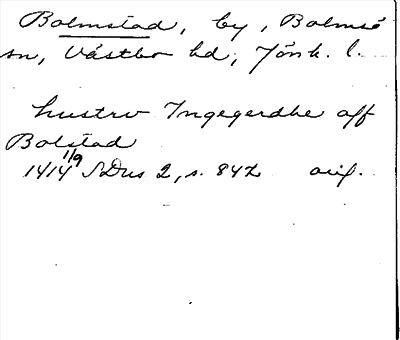 Bolmstad, by, Bolmsö
sn, Västbo hd, Jönk. l.
hustrv Ingegerdhe aff
Bolstad
1414 1/9 SDns 2, s. 842 orig.